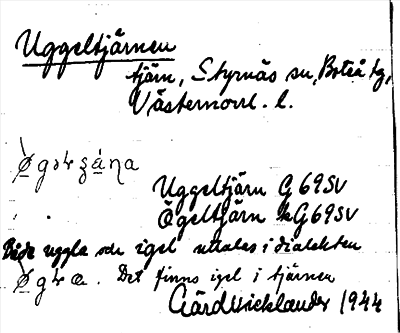 Uggeltjärnen
tjärn, Styrnäs sn, Boteå tg,
Västernorrl. l.
Uggeltjärn G 69 SV
Ögeltjärn G 69 SV
Både uggla och igel uttalas i dialekten
Det finns igel i tjärnen
Gärd Wicklander 1944